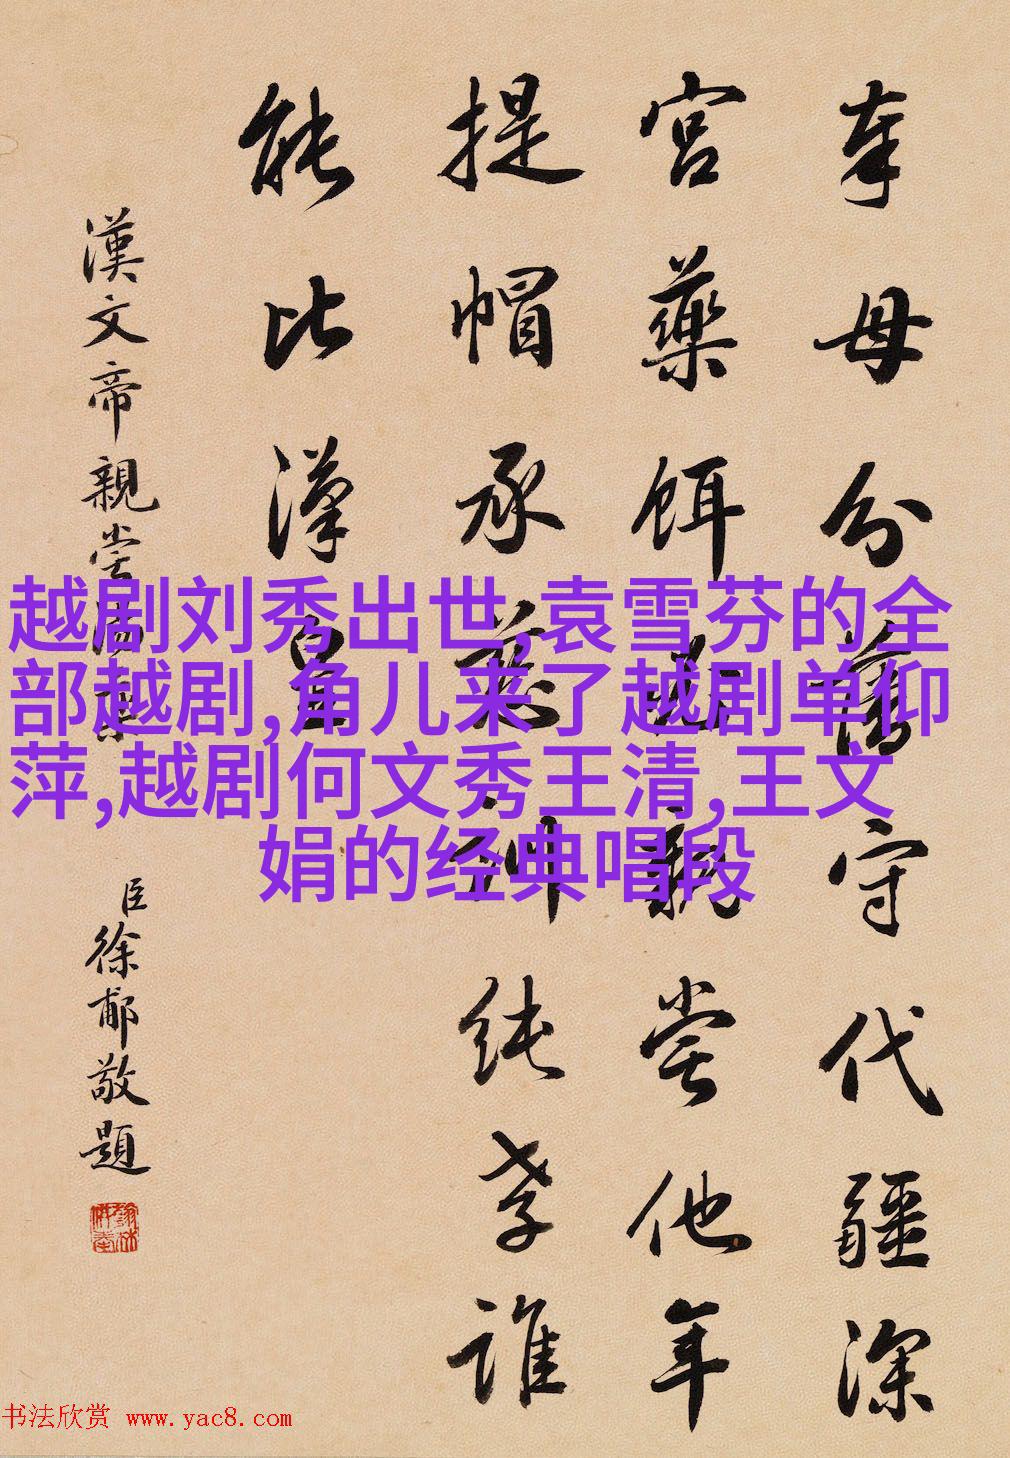 奉母分藩守代疆深
宮藥餌必親嘗他年
提帽承慈訓純孝誰
能比漢皇
漢文帝親嘗湯藥
臣徐郙敬題
越剧刘秀出世,袁雪芬的全
部越剧,角儿来了越剧单仰
萍,越剧何文秀王清,王文
娟的经典唱段
书法欣赏 www.yac8.com